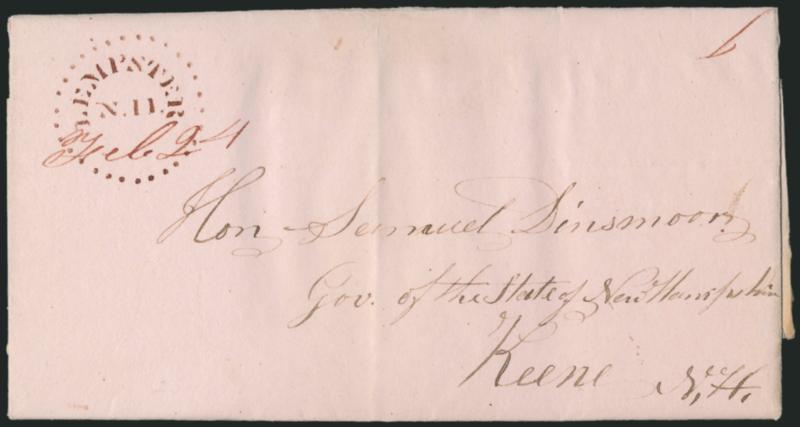 LEMPSTER
N.H.
Feb 24
6
Hon. Samuel Dinsmoor
Gov. of the State of New Hampshire
Keene N.H.